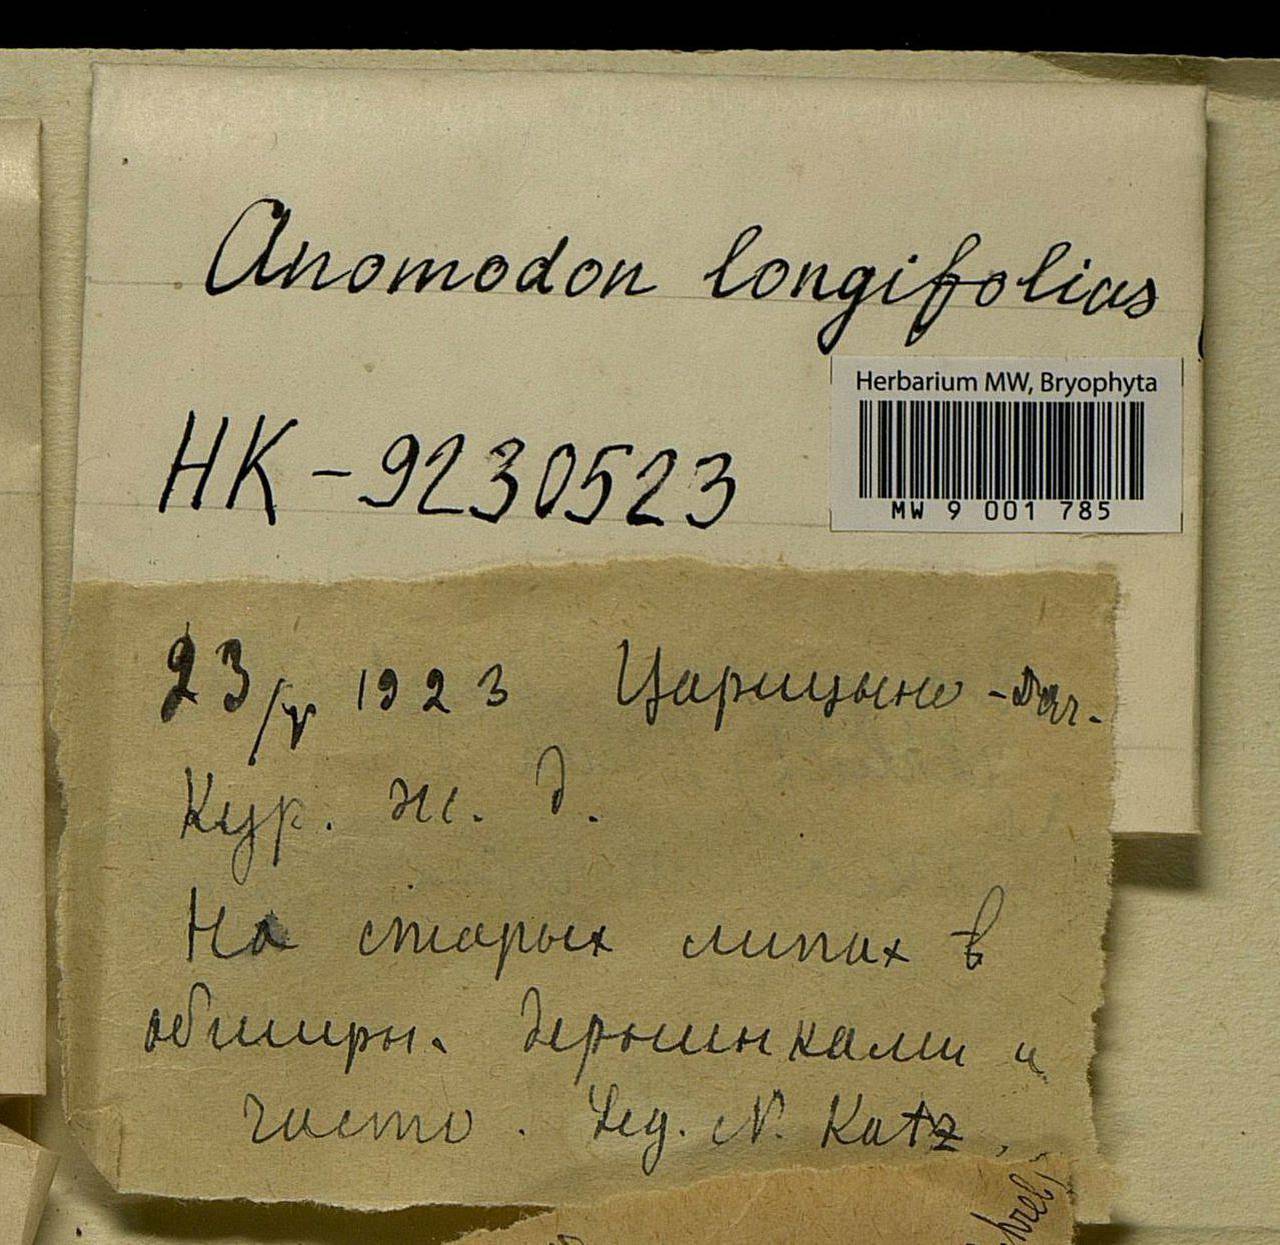 Anomodon longifolius
Herbarium MW, Bryophyta
MW 9 001 785
НК-9230523
23/V 1923 Царицыно-Дач.
Кур. ж. д.
На старых липах в
обширн. дернинками и
часто. Leg. N. Katz.